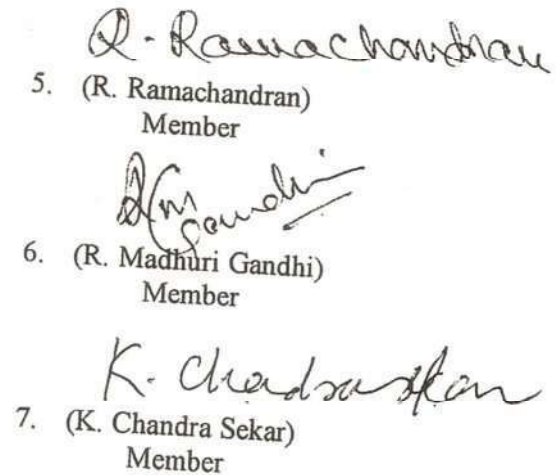 R. Ramachandran
5. (R. Ramachandran)
Member
Gandhi
6. (R. Madhuri Gandhi)
Member
K. Chadrasekar
7. (K. Chandra Sekar)
Member